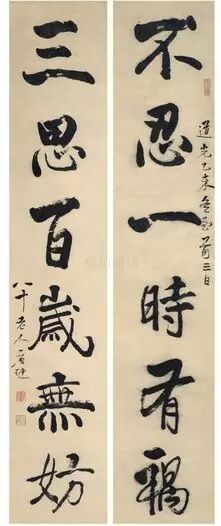 不忍一時有禍
道光乙未冬至前三日
三思百歲無妨
八十老人